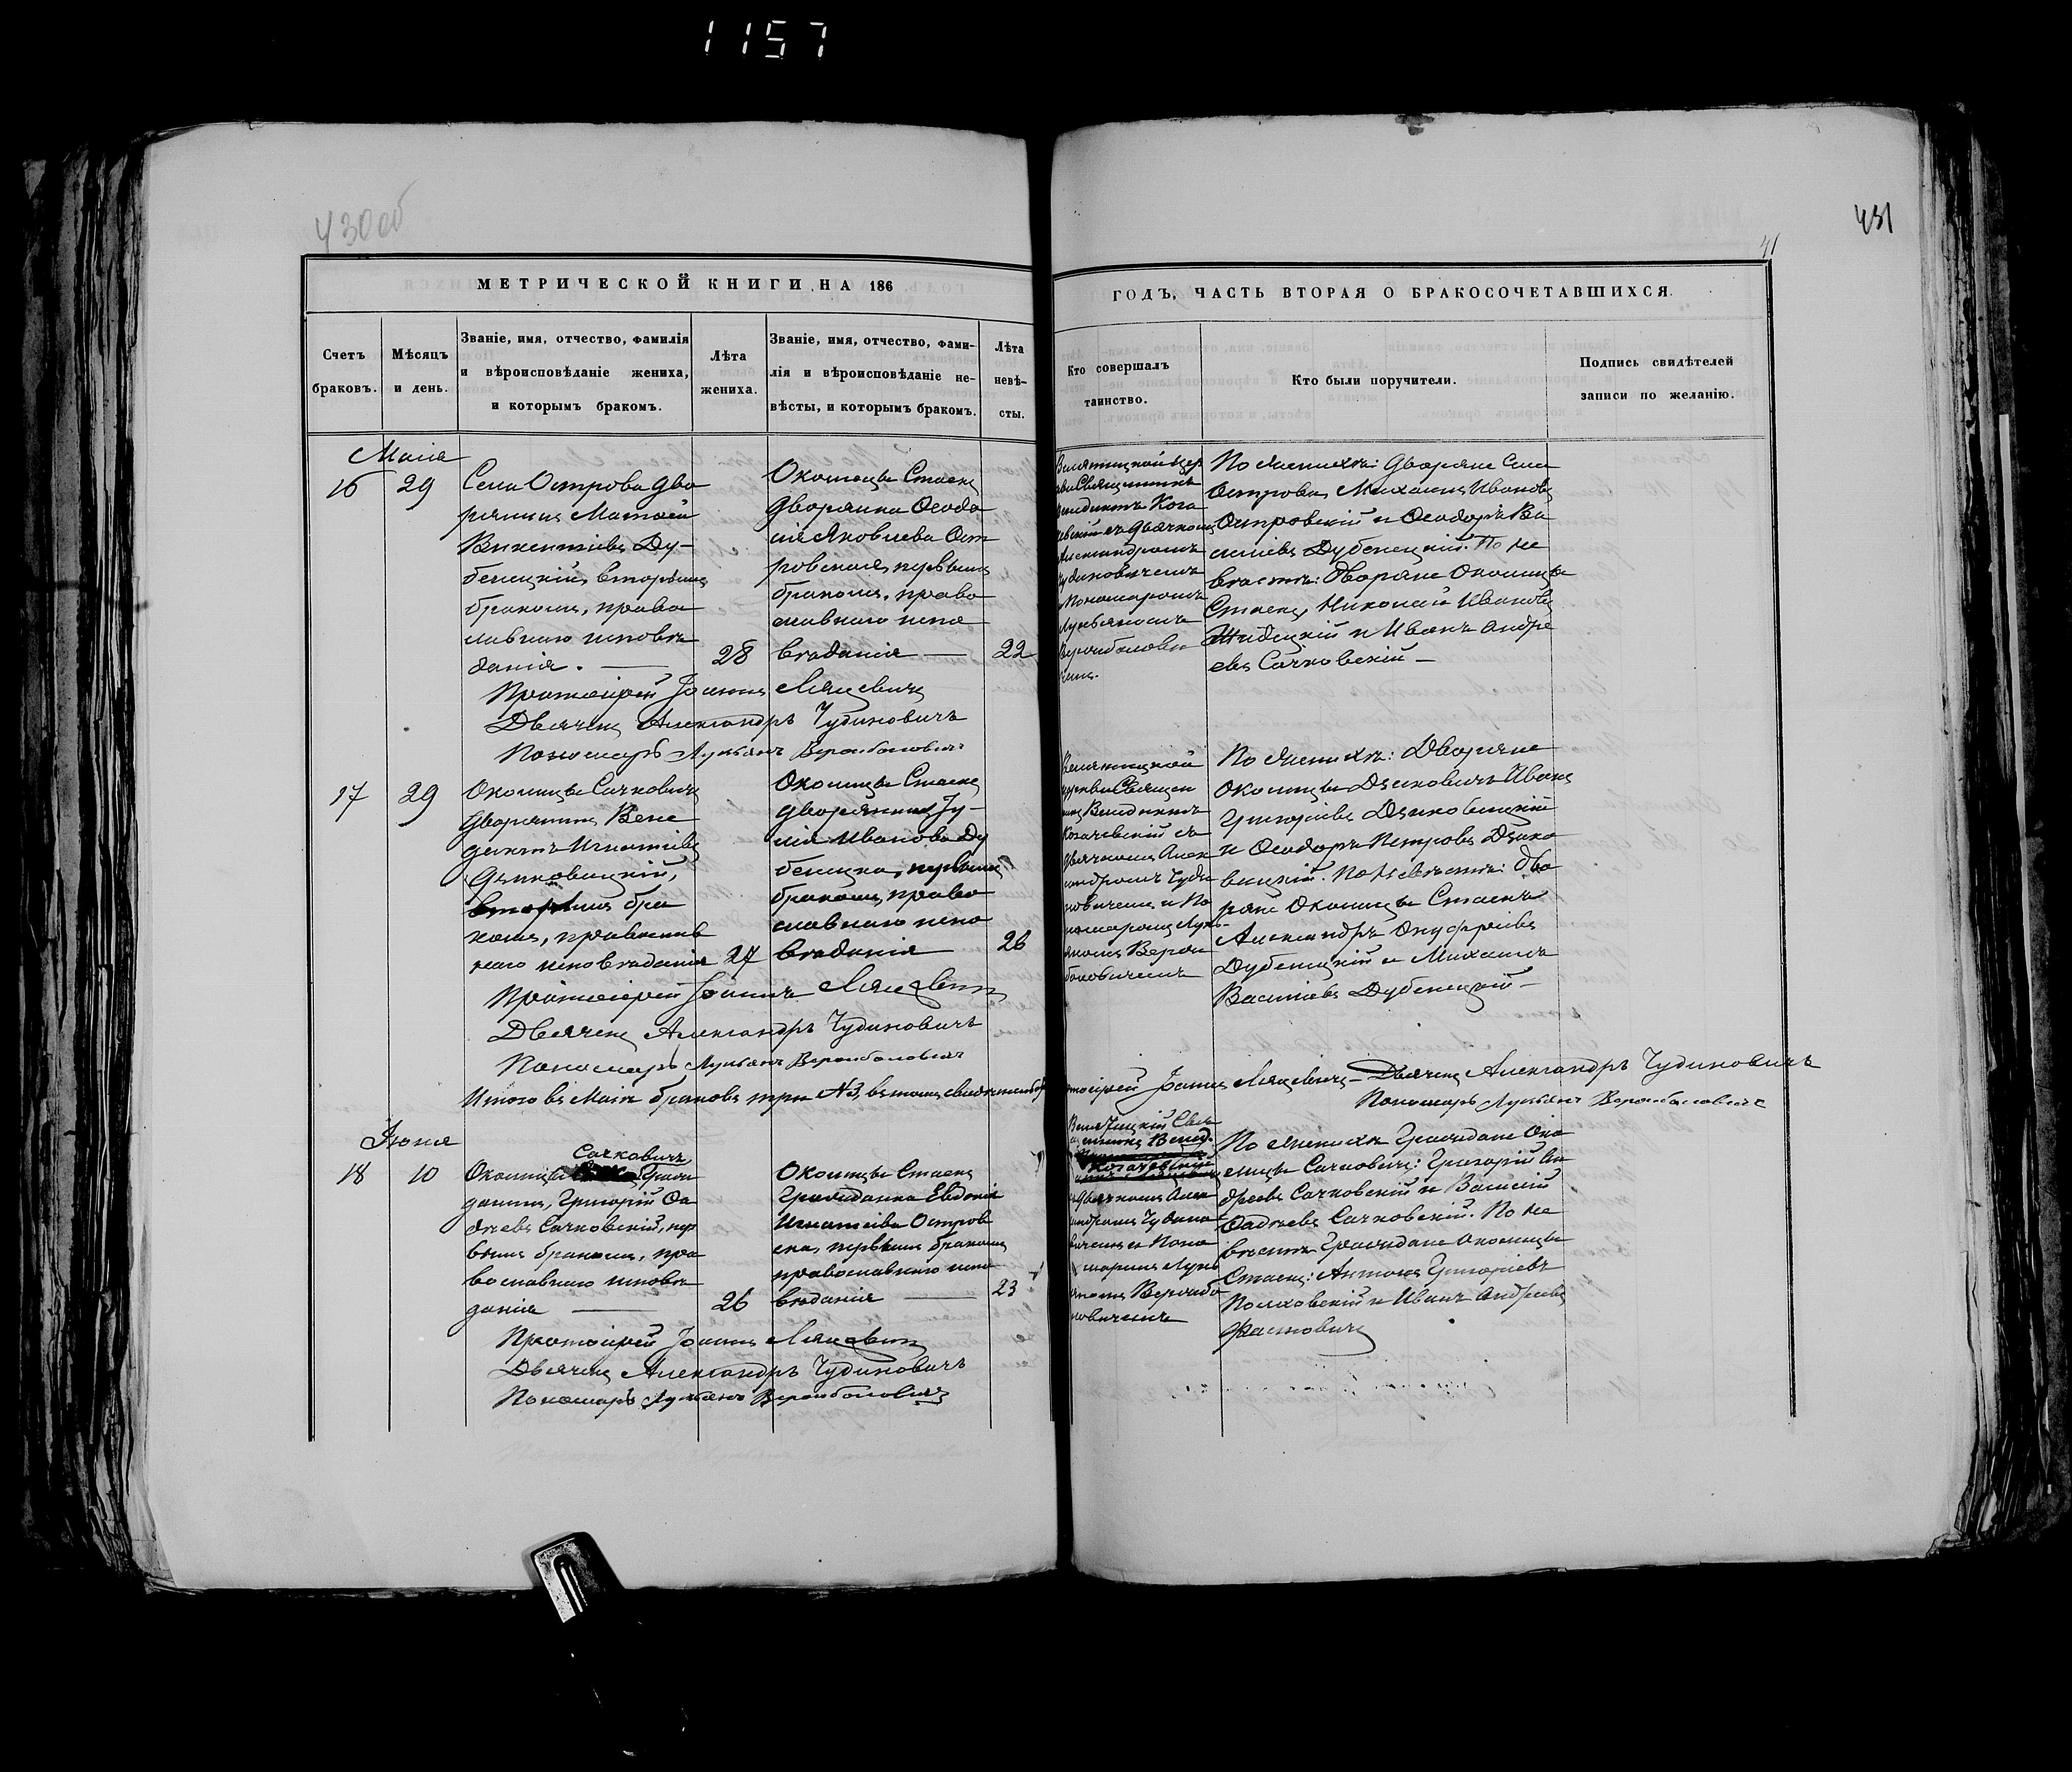 1157
430об
431
41
МЕТРИЧЕСКОЙ КНИГИ НА 186
ГОДЪ, ЧАСТЬ ВТОРАЯ О БРАКОСОЧЕТАВШИХСЯ.
Счетъ браковъ.
Мѣсяцъ и день.
Званіе, имя, отчество, фамилія
и вѣроисповѣданіе жениха,
и которымъ бракомъ.
Лѣта
жениха.
Званіе, имя, отчество, фами-
лія и вѣроисповѣданіе не-
вѣсты, и которымъ бракомъ.
Лѣта
невѣ-
сты.
Кто совершалъ
таинство.
Кто были поручители.
Подпись свидѣтелей
записи по желанію.
Маія
16
29
Села Острова дво
рянинъ Матвей
Викентіевъ Ду-
бенецкій, вторымъ
бракомъ, право
славнаго исповѣ
данія. —
28
Околицы Стаекъ
дворянка Ѳеодо
сія Яковлева Ост
ровская, первымъ
бракомъ, право
славнаго испо
вѣданія —
22
церк
Священникъ
съ дьячкомъ
Александромъ
Чудиновичемъ
Пономаремъ
Лукьяномъ
По женихѣ: дворяне села
Острова, Михаилъ Ивановъ
Островскій и Ѳеодоръ Ва
сильевъ Дубенецкій. По не
вѣстѣ: дворяне околицы
Стаекъ, Николай Ивановъ
и Иванъ Андре
евъ Сачковскій —
Протоіерей Іоаннъ Ляцевичъ
Дьячекъ Александръ Чудиновичъ
Пономарь Лукьянъ
17
29
Околицы Сачковичъ
дворянинъ Вене
диктъ Игнатіевъ
Дзиковицкій,
вторымъ бра
комъ, православ
наго исповѣданія
27
Околицы Стаекъ
дворянка Іу-
лія Иванова Ду
бенецка, первымъ
бракомъ, право
славнаго испо
вѣданія
26
церкви Священ
никъ Венедиктъ
Когачевскій съ
дьячкомъ Алек
сандромъ Чуди
новичемъ и По
номаремъ Лукь-
яномъ
По женихѣ: Дворяне
околицы Дзиковичъ Иванъ
Григоріевъ Дзиковицкій
и Ѳеодоръ Петровъ Дзико
вицкій. По невѣстѣ: дво
ряне околицы Стаекъ
Александръ Онуфріевъ
Дубенецкій и Михаилъ
Васильевъ Дубенецкій —
Протоіерей Іоаннъ Ляцевичъ
Дьячекъ Александръ Чудиновичъ
Пономарь Лукьянъ
Итого въ Маіѣ браковъ три №3, въ томъ
Іоаннъ Ляцевичъ — Дьячекъ Александръ Чудиновичъ
Пономарь Лукьянъ
Іюня
18
10
Сачковичъ
Околицы Граж
данинъ, Григорій Ѳа
дѣевъ Сачковскій, пер
вымъ бракомъ, пра
вославнаго исповѣ
данія —
26
Околицы Стаекъ
Гражданка Евдокія
Игнатіева Островс
ка, первымъ бракомъ
православнаго испо
вѣданія —
23
Когачевскій
дьячкомъ Алек
сандромъ Чудино
вичемъ и Поно
маремъ Лукь
яномъ
По женихѣ Граждане око
лицы Сачковичъ: Григорій Ан
дреевъ Сачковскій и Василій
Ѳадѣевъ Сачковскій. По не
вѣстѣ Граждане околицы
Стаекъ: Антонъ Григоріевъ
и Иванъ Андреевъ
Протоіерей Іоаннъ Ляцевичъ
Дьячекъ Александръ Чудиновичъ
Пономарь Лукьянъ